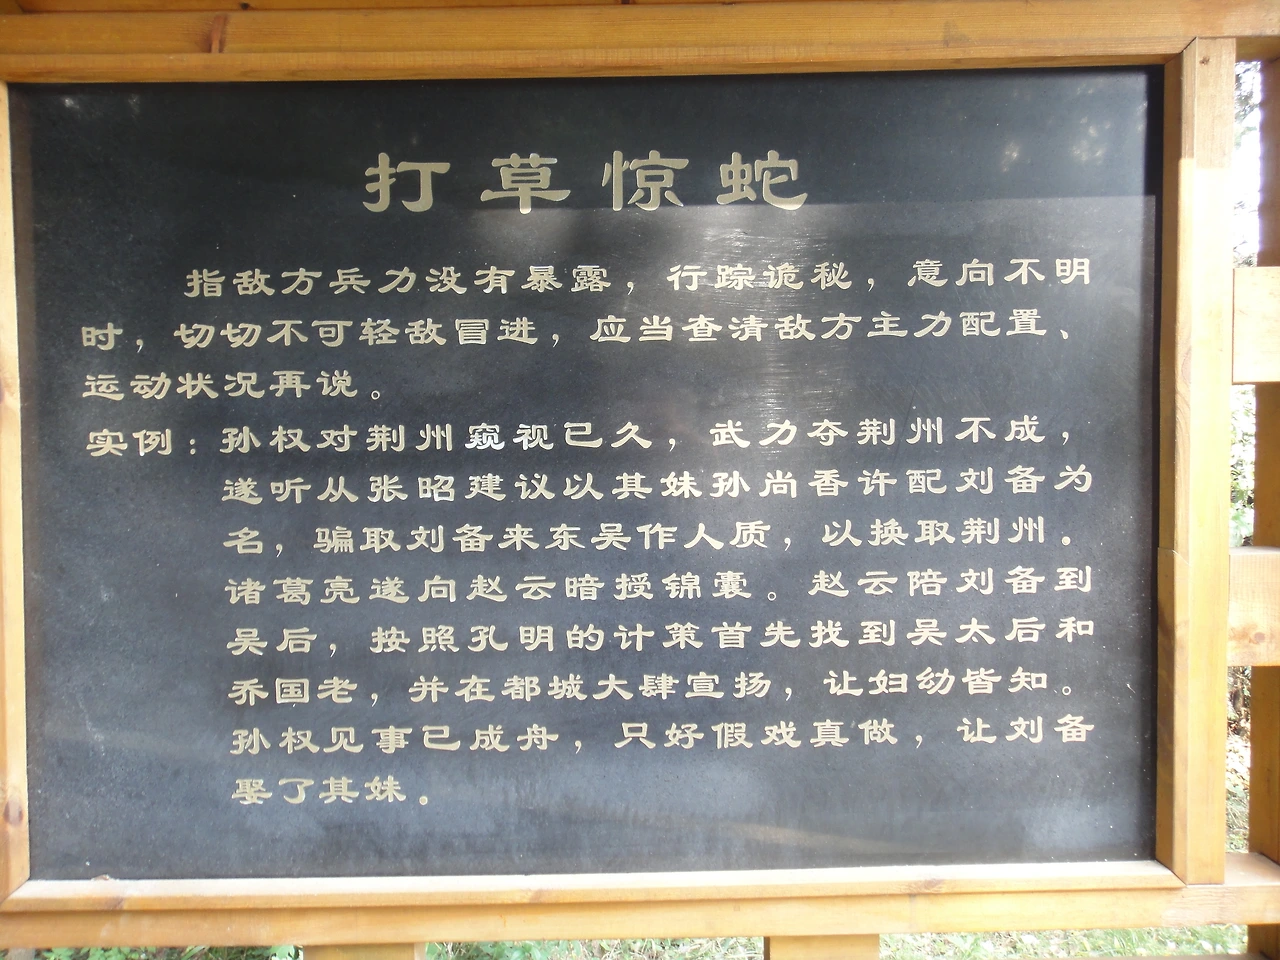 打草惊蛇
指敌方兵力没有暴露，行踪诡秘，意向不明
时，切切不可轻敌冒进，应当查清敌方主力配置、
运动状况再说。
实例：孙权对荆州窥视已久，武力夺荆州不成，
遂听从张昭建议以其妹孙尚香许配刘备为
名，骗取刘备来东吴作人质，以换取荆州。
诸葛亮遂向赵云暗授锦囊。赵云陪刘备到
吴后，按照孔明的计策首先找到吴太后和
乔国老，并在都城大肆宣扬，让妇幼皆知。
孙权见事已成舟，只好假戏真做，让刘备
娶了其妹。